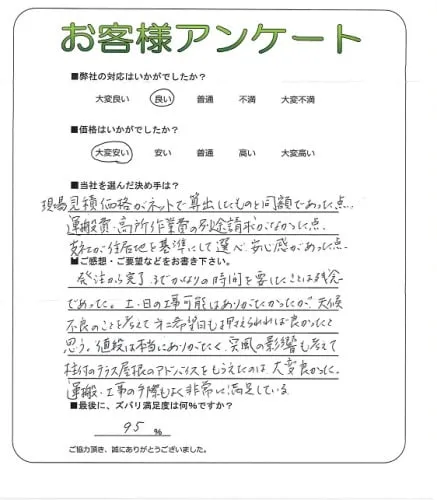 お客様アンケート
■弊社の対応はいかがでしたか？
大変良い 良い 普通 不満 大変不満
■価格はいかがでしたか？
大変安い 安い 普通 高い 大変高い
■当社を選んだ決め手は？
現場見積価格がネットで算出したものと同額であった点.
運搬費・高所作業費の別途請求がなかった点.
支社が住居地を基準にして選べ、安心感があった点.
■ご感想・ご要望などをお書き下さい。
発注から完了までかなりの時間を要したことは残念
であった。土・日の工事可能はありがたかったが、天候
不良のことを考えて第二希望日も押えられれば良かったと
思う。値段は本当にありがたく、突風の影響も考えて
柱付のテラス屋根のアドバイスをもらえたのは、大変良かった。
運搬・工事の手際もよく非常に満足している
■最後に、ズバリ満足度は何%ですか？
95 %
ご協力頂き、誠にありがとうございました。